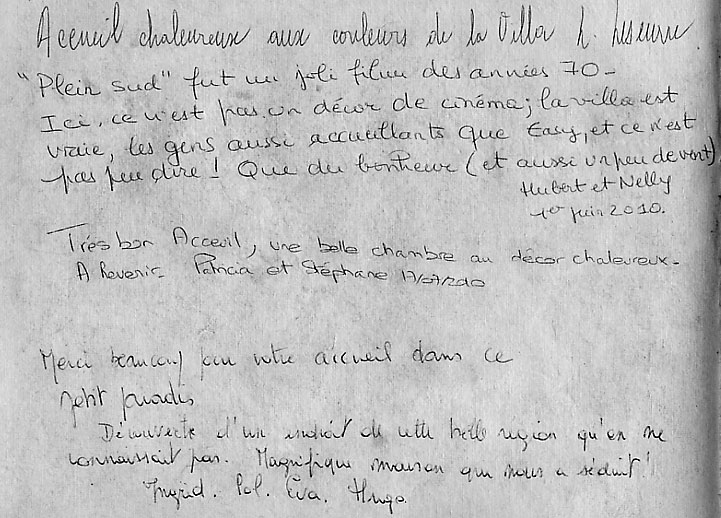 Acceuil chaleureux aux couleurs de la Villa
"Plein sud" fut un joli film des années 70-
Ici, ce n'est pas un décor de cinéma; la villa est
vraie, les gens aussi accueillants que Easy, et ce n'est
pas peu dire! Que du bonheur (et aussi un peu de vent)
Hubert et Nelly
1er juin 2010.
Très bon Acceuil, une belle chambre au décor chaleureux-
A Revenir Patricia et Stéphane 17/07/2010
Merci beaucoup pour votre accueil dans ce
petit paradis
Découverte d'un endroit de cette belle région qu'on ne
connaissait pas. Magnifique maison qui nous a séduit!
Ingrid. Pol. Eva. Hugo.